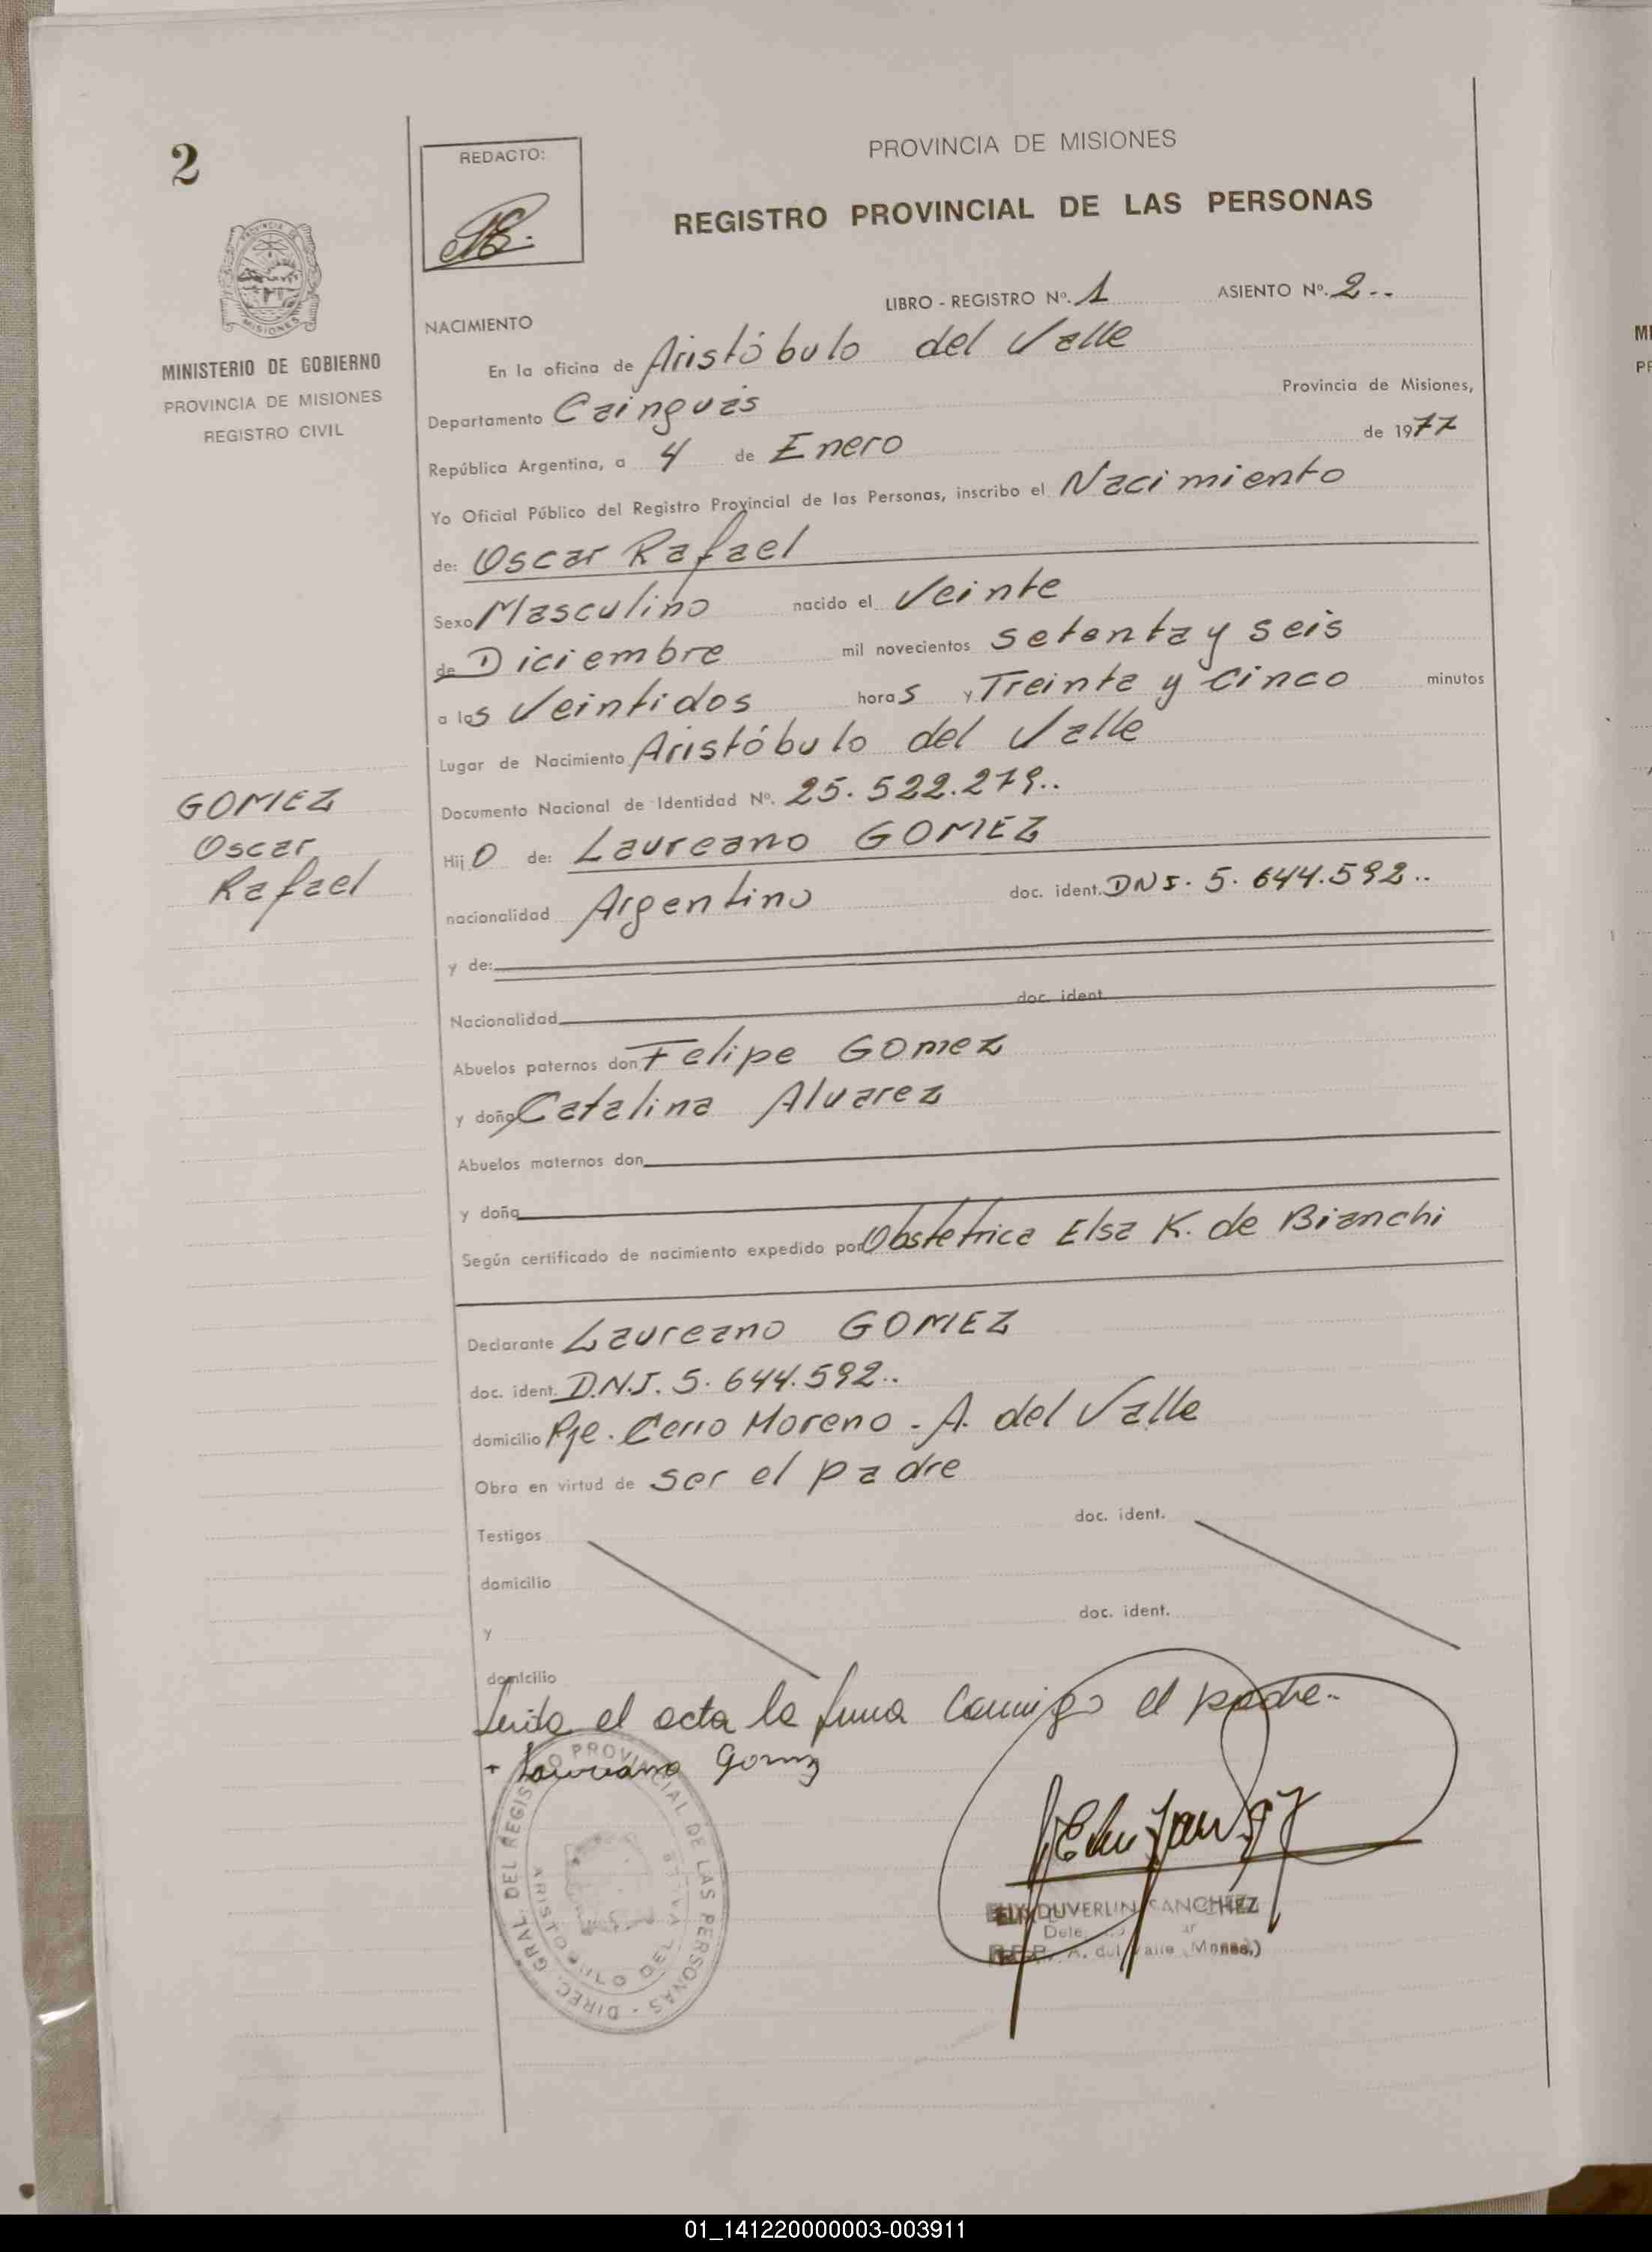 2
REDACTO:
PROVINCIA DE MISIONES
REGISTRO PROVINCIAL DE LAS PERSONAS
MISIONES
MINISTERIO DE GOBIERNO
PROVINCIA DE MISIONES
REGISTRO CIVIL
LIBRO - REGISTRO Nº. 1 ASIENTO Nº. 2--
NACIMIENTO
En la oficina de Aristóbulo del Valle
Departamento Cainguás Provincia de Misiones,
República Argentina, a 4 de Enero de 1977
Yo Oficial Público del Registro Provincial de las Personas, inscribo el Nacimiento
de: Oscar Rafael
Sexo Masculino nacido el Veinte
de Diciembre mil novecientos setenta y seis
a las Veintidos horas y Treinta y Cinco minutos
Lugar de Nacimiento Aristóbulo del Valle
Documento Nacional de Identidad Nº. 25.522.279..
GOMEZ
Oscar
Rafael
Hijo de: Laureano GOMEZ
nacionalidad Argentino doc. ident. DNI. 5.644.592..
y de:
Nacionalidad doc. ident.
Abuelos paternos don Felipe Gomez
y doña Catalina Alvarez
Abuelos maternos don
y doña
Según certificado de nacimiento expedido por Obstetrica Elsa K. de Bianchi
Declarante Laureano GOMEZ
doc. ident. D.N.I. 5.644.592..
domicilio Pje. Cerro Moreno - A. del Valle
Obra en virtud de ser el padre
Testigos doc. ident.
domicilio
y doc. ident.
domicilio
Leida el acta la firma conmigo el padre.-
+ Laureano Gomez
DIREC. GRAL. DEL REGISTRO PROVINCIAL DE LAS PERSONAS -
ARISTOBULO DEL VALLE
DUVERLIN SANCHEZ
A. del Valle (Mnes.)
01_141220000003-003911